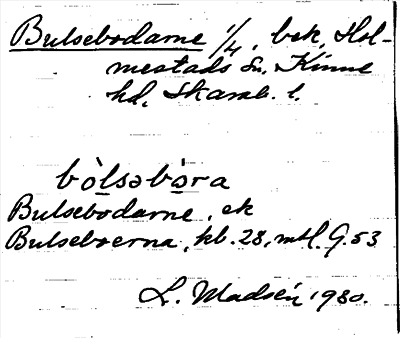 Bulsebodarne 1/4, bek. Hol-
mestads sn, Kinne
hd, Skarab. l.
bòlsəbòra
Bulsebodarne, ek
Bulseboerna, kb. 28, mtl. G. 53
L. Madsén 1930.